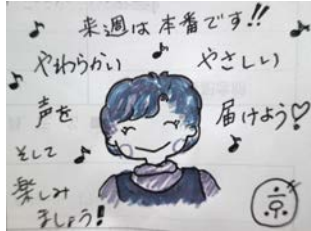 来週は本番です!!
やわらかい やさしい
声を 届けよう♡
そして
楽しみ
ましょう!